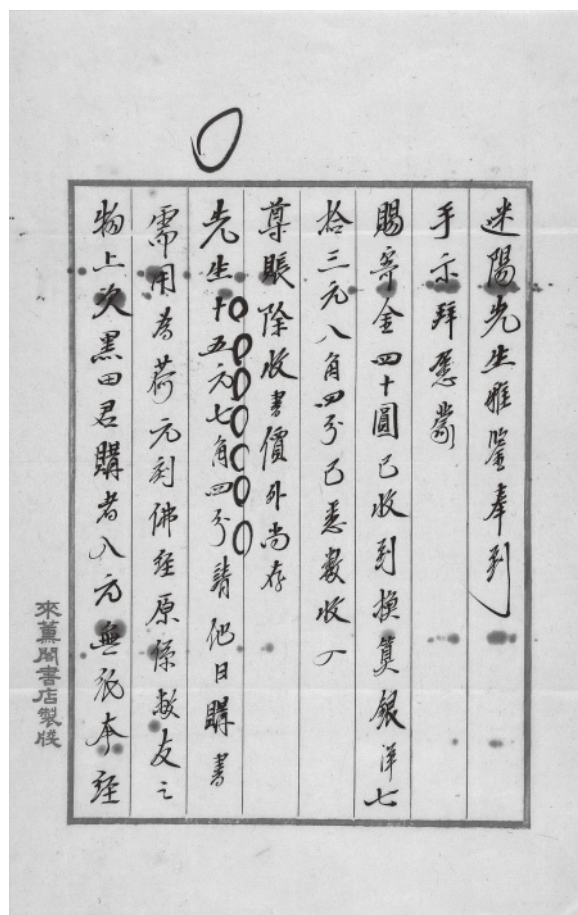 迷陽先生雅鑒奉到
手示拜悉蒙
賜寄金四十圓已收到換算銀洋七
拾三元八角四分已悉數收入
尊賬除收書價外尚存
先生十五元七角四分請他日購書
需用為荷元刻佛經原係敝友之
物上次黑田君購者八元無紙本經
來薰閣書店製牋